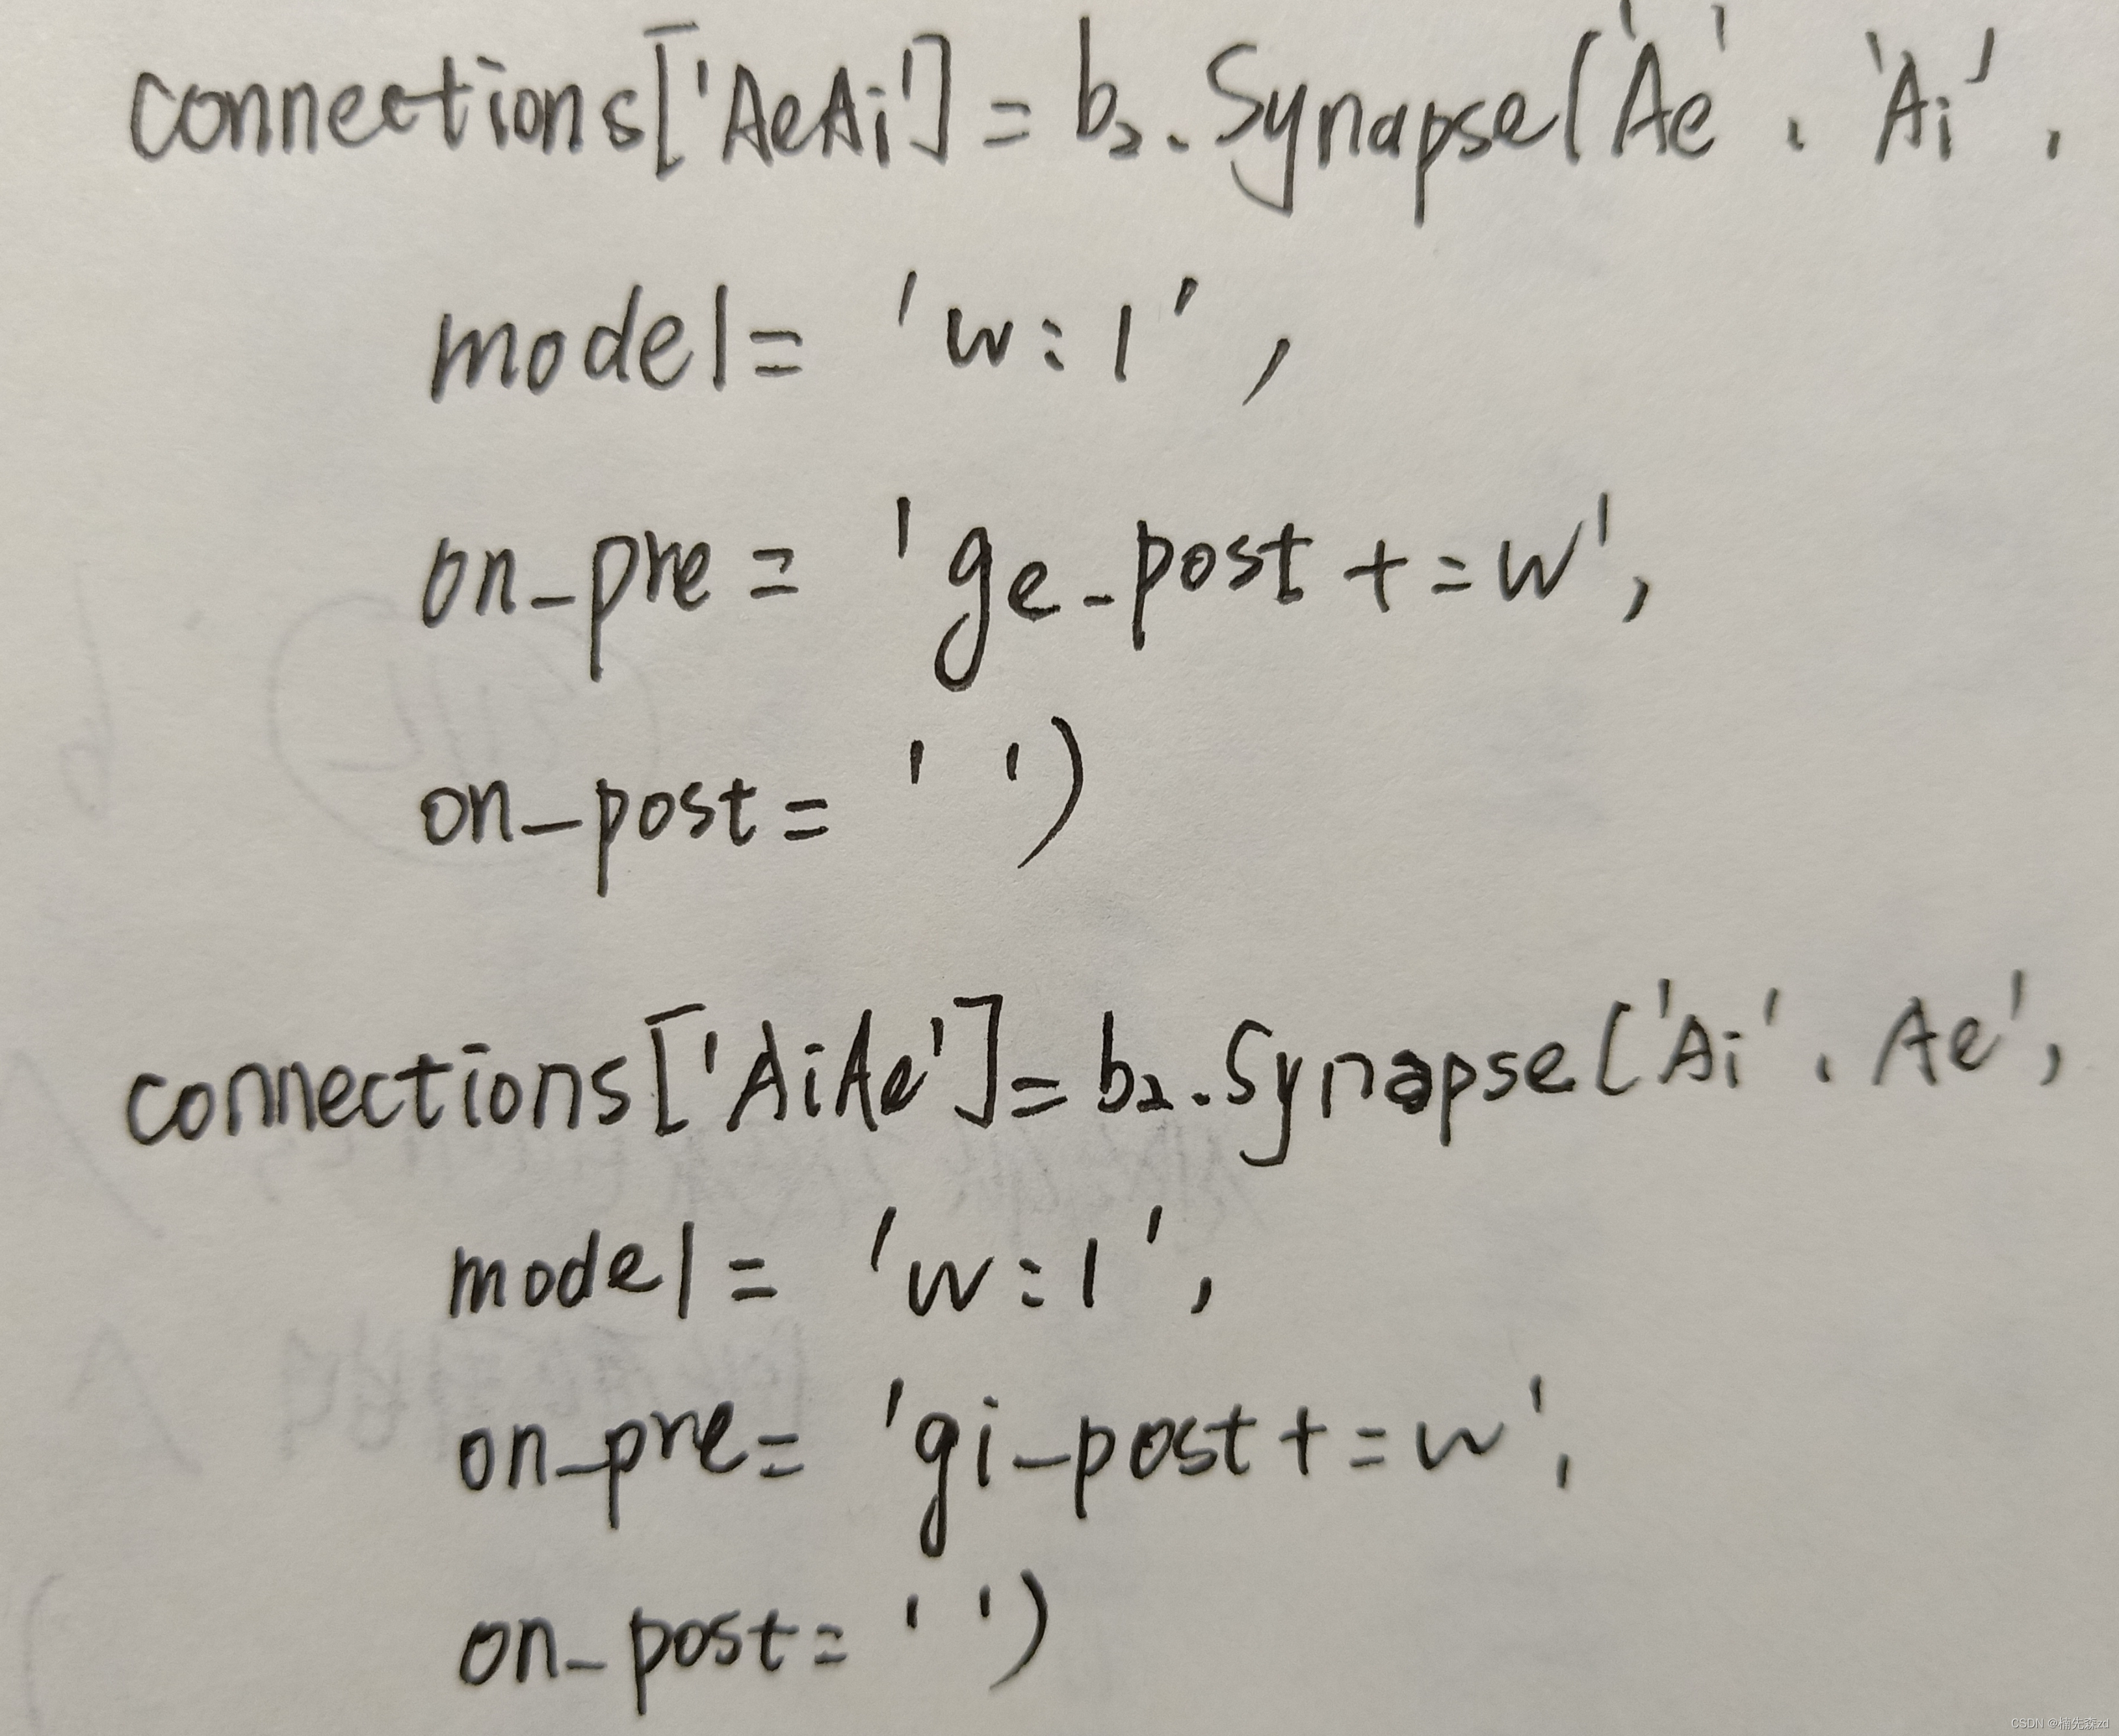 connections['AeAi'] = b2.Synapse('Ae', 'Ai',
model= 'w:1',
on_pre= 'ge_post+=w',
on_post= ' ')
connections['AiAe']=b2.Synapse('Ai', Ae',
model= 'w:1',
on_pre= 'gi_post+=w',
on_post= ' ')
CSDN @楠先森zd